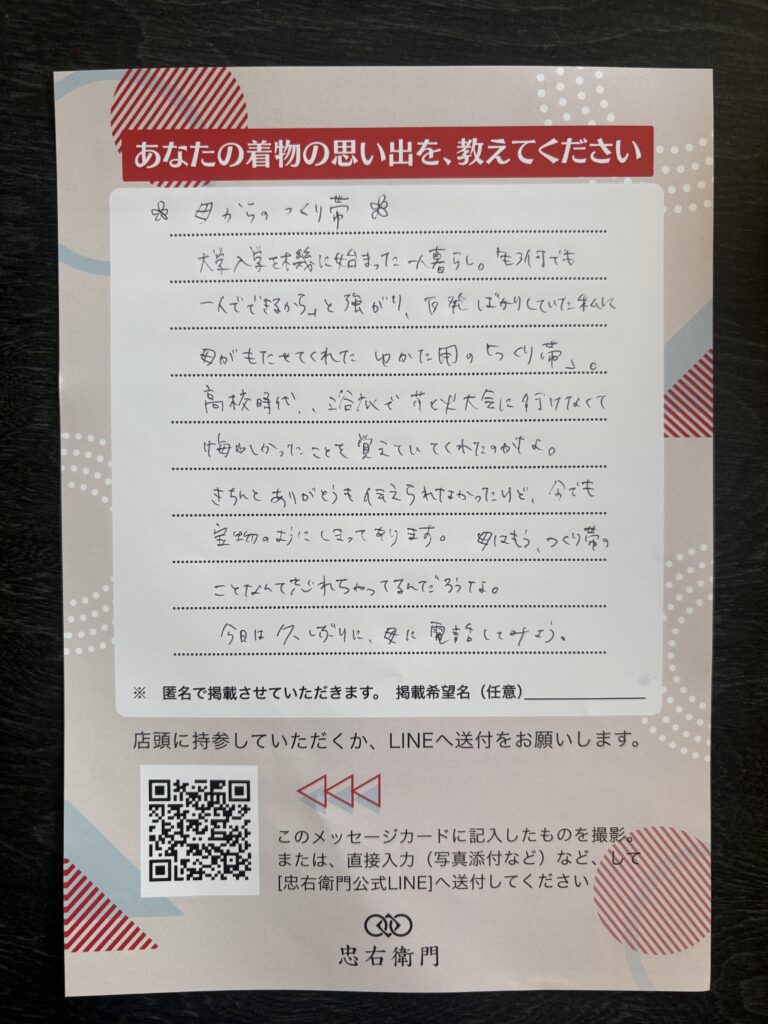 あなたの着物の思い出を、教えてください
母からのつくり帯
大学入学を機に始まった一人暮らし。「もう何でも
一人でできるから」と強がり、反発ばかりしていた私に
母がもたせてくれた ゆかた用の「つくり帯」。
高校時代、浴衣で花火大会に行けなくて
悔やしかったことを覚えていてくれたのかな。
きちんとありがとうも伝えられなかったけど、今でも
宝物のようにしまってあります。 母はもう、つくり帯の
ことなんて忘れちゃってるんだろうな。
今日は久しぶりに、母に電話してみよう。
※ 匿名で掲載させていただきます。 掲載希望名（任意）
店頭に持参していただくか、LINEへ送付をお願いします。
このメッセージカードに記入したものを撮影。
または、直接入力（写真添付など）など、して
[忠右衛門公式LINE]へ送付してください
忠右衛門